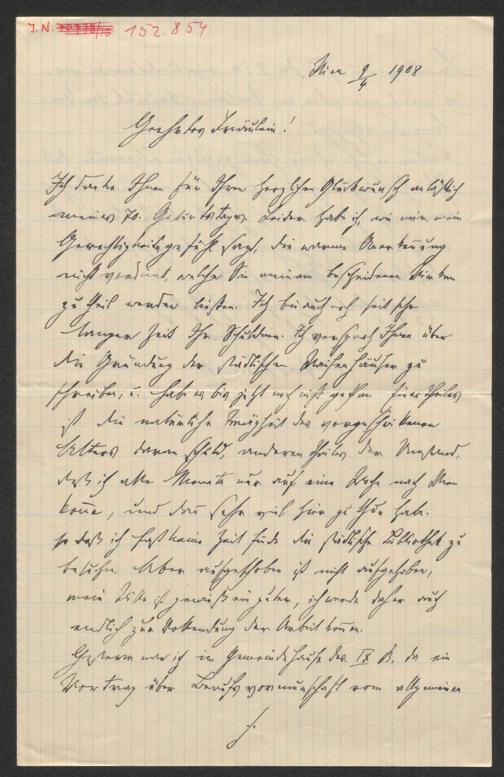 J. N. 152.854
Wien 9/4 1908
Geehrtes Fräulein!
Ich danke Ihnen für Ihren herzlichen Glückwunsch anläßlich
meines 70. Geburtstages. Leider habe ich, wie mir mein
Gerechtigkeitsgefühl sagt, die warme Anerkennung
nicht verdient, welche Sie meinem bescheidenen Wirken
zu theil werden ließen. Ich bin auch noch seit sehr
langer Zeit Ihr Schuldner. Ich versprach Ihnen über
die Gründung der städtischen Waisenhäuser zu
schreiben, u. habe es bis jetzt noch nicht gethan. Eines Theiles
ist die natürliche Trägheit des vorgeschrittenen
Alters daran schuld, anderen Theiles der Umstand,
daß ich alle Monate nur auf eine Woche nach Wien
komme, und dann sehr viel hier zu thun habe,
so daß ich fast keine Zeit finde die städtische Bibliothek zu
besuchen. Aber aufgeschoben ist nicht aufgehoben,
mein Wille ist gewiß ein guter, ich werde daher auch
endlich zur Vollendung der Arbeit kommen.
Gestern war ich in Gemeindehause des IX. B., da ein
Vortrag über Berufsvormundschaft vom allgemeinen